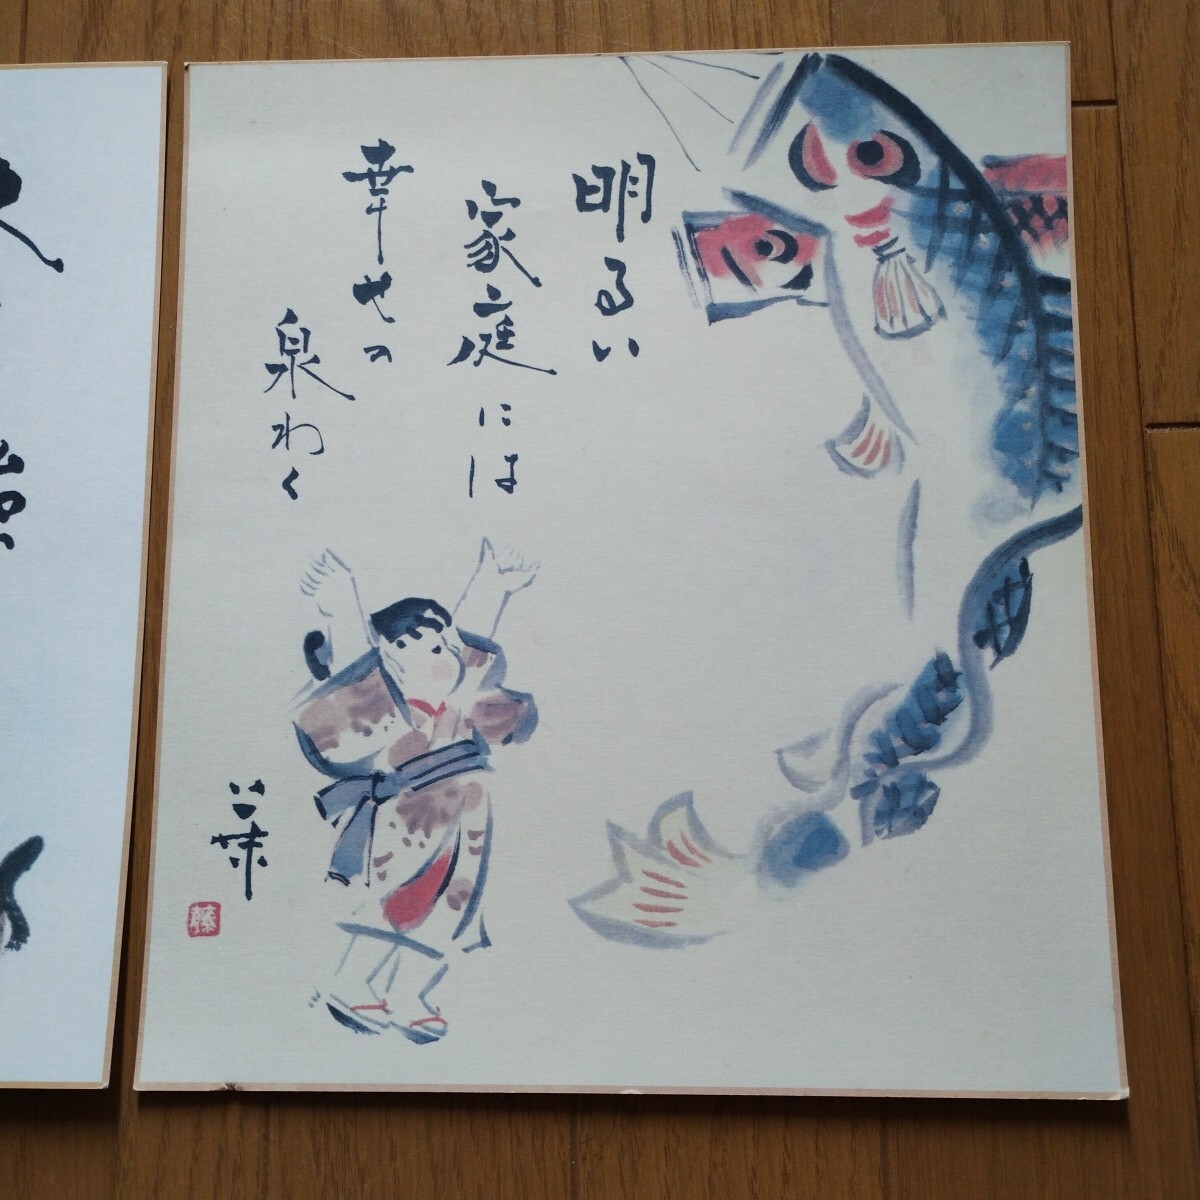 明るい
家庭には
幸せの
泉わく